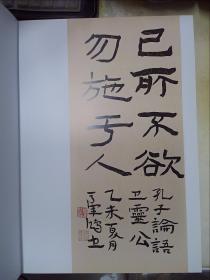 己所不欲
勿施于人
孔子論語
卫靈公
乙未夏月
书